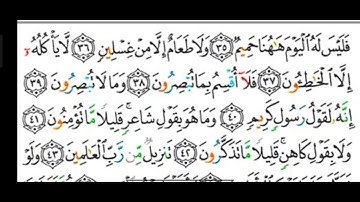 فَلَيْسَ لَهُ الْيَوْمَ هَٰهُنَا حَمِيمٌ ٣٥ وَلَا طَعَامٌ إِلَّا مِنْ غِسْلِينٍ ٣٦ لَا يَأْكُلُهُ
إِلَّا الْخَاطِئُونَ ٣٧ فَلَا أُقْسِمُ بِمَا تُبْصِرُونَ ٣٨ وَمَا لَا تُبْصِرُونَ ٣٩
إِنَّهُ لَقَوْلُ رَسُولٍ كَرِيمٍ ٤٠ وَمَا هُوَ بِقَوْلِ شَاعِرٍ قَلِيلًا مَّا تُؤْمِنُونَ ٤١
وَلَا بِقَوْلِ كَاهِنٍ قَلِيلًا مَّا تَذَكَّرُونَ ٤٢ تَنزِيلٌ مِّن رَّبِّ الْعَالَمِينَ ٤٣ وَلَوْ